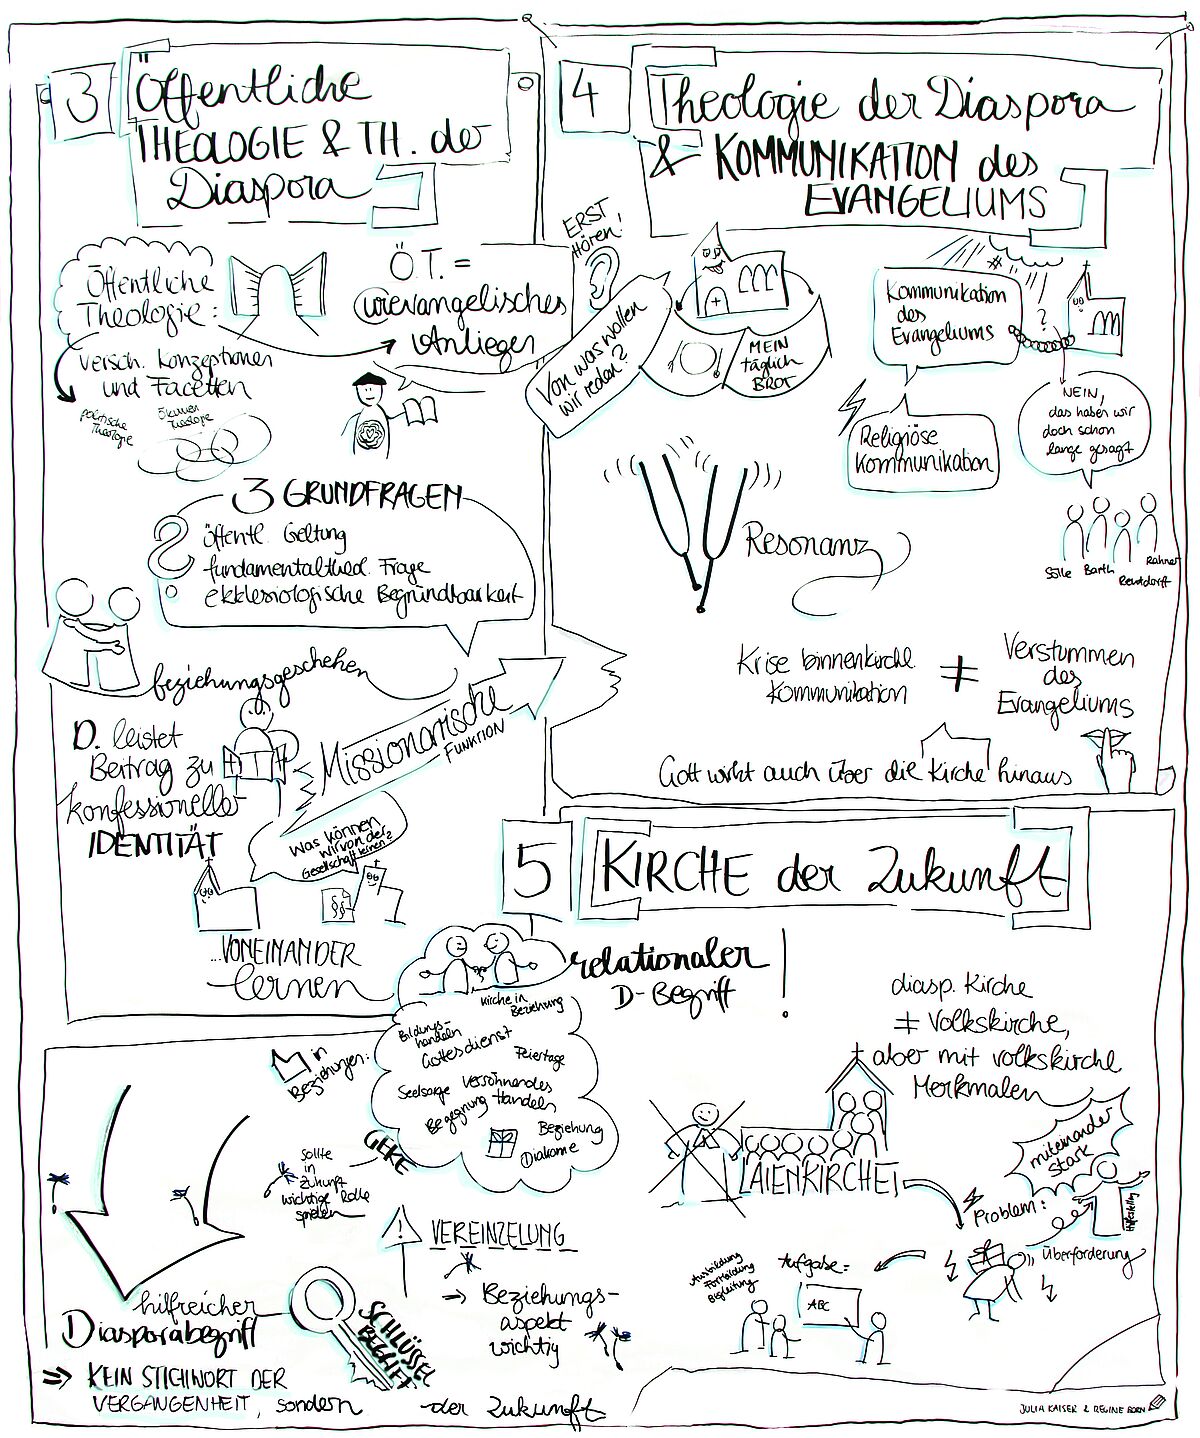 3
Öffentliche
THEOLOGIE & TH. der
Diaspora
Öffentliche
Theologie:
Ö.T. =
urevangelisches
Anliegen
versch. Konzeptionen
und Facetten
politische
Theologie
ökumen.
Theologie
3 GRUNDFRAGEN
öffentl. Geltung
fundamentaltheol. Frage
ekklesiologische Begründbarkeit
beziehungsgeschehen
D. leistet
Beitrag zu
konfessioneller
IDENTITÄT
Missionarische
FUNKTION
Was können
wir von der
Gesellschaft lernen?
§§
...VONEINANDER
lernen
4
Theologie der Diaspora
& KOMMUNIKATION des
EVANGELIUMS
ERST
Hören!
Von was wollen
wir reden?
MEIN
täglich
BROT
Kommunikation
des
Evangeliums
#
?
Religiöse
Kommunikation
NEIN,
das haben wir
doch schon
lange gesagt
Sölle
Barth
Rendtorff
Rahner
Resonanz
Krise binnenkirchl.
Kommunikation
≠
Verstummen
des
Evangeliums
Gott wirkt auch über die Kirche hinaus
5
KIRCHE der Zukunft
relationaler
D-Begriff
!
Kirche in
Beziehung
in
Beziehungen:
Bildungs-
handeln
Gottesdienst
Feiertage
Seelsorge
Versöhnendes
Handeln
Begegnung
Beziehung
Diakonie
GEKE
sollte
in
Zukunft
wichtige Rolle
spielen
diasp. Kirche
≠ Volkskirche,
aber mit volkskirchl.
Merkmalen
LAIENKIRCHE
miteinander
stark
Problem:
Hilfestellg
Überforderung
Aufgabe:
Ausbildung
Fortbildung
Begleitung
ABC
! VEREINZELUNG
=> Beziehungs-
aspekt
wichtig
hilfreicher
Diasporabegriff
SCHLÜSSEL
BEGRIFF
=> KEIN STICHWORT DER
VERGANGENHEIT, sondern der Zukunft
JULIA KAISER & REGINE BORN